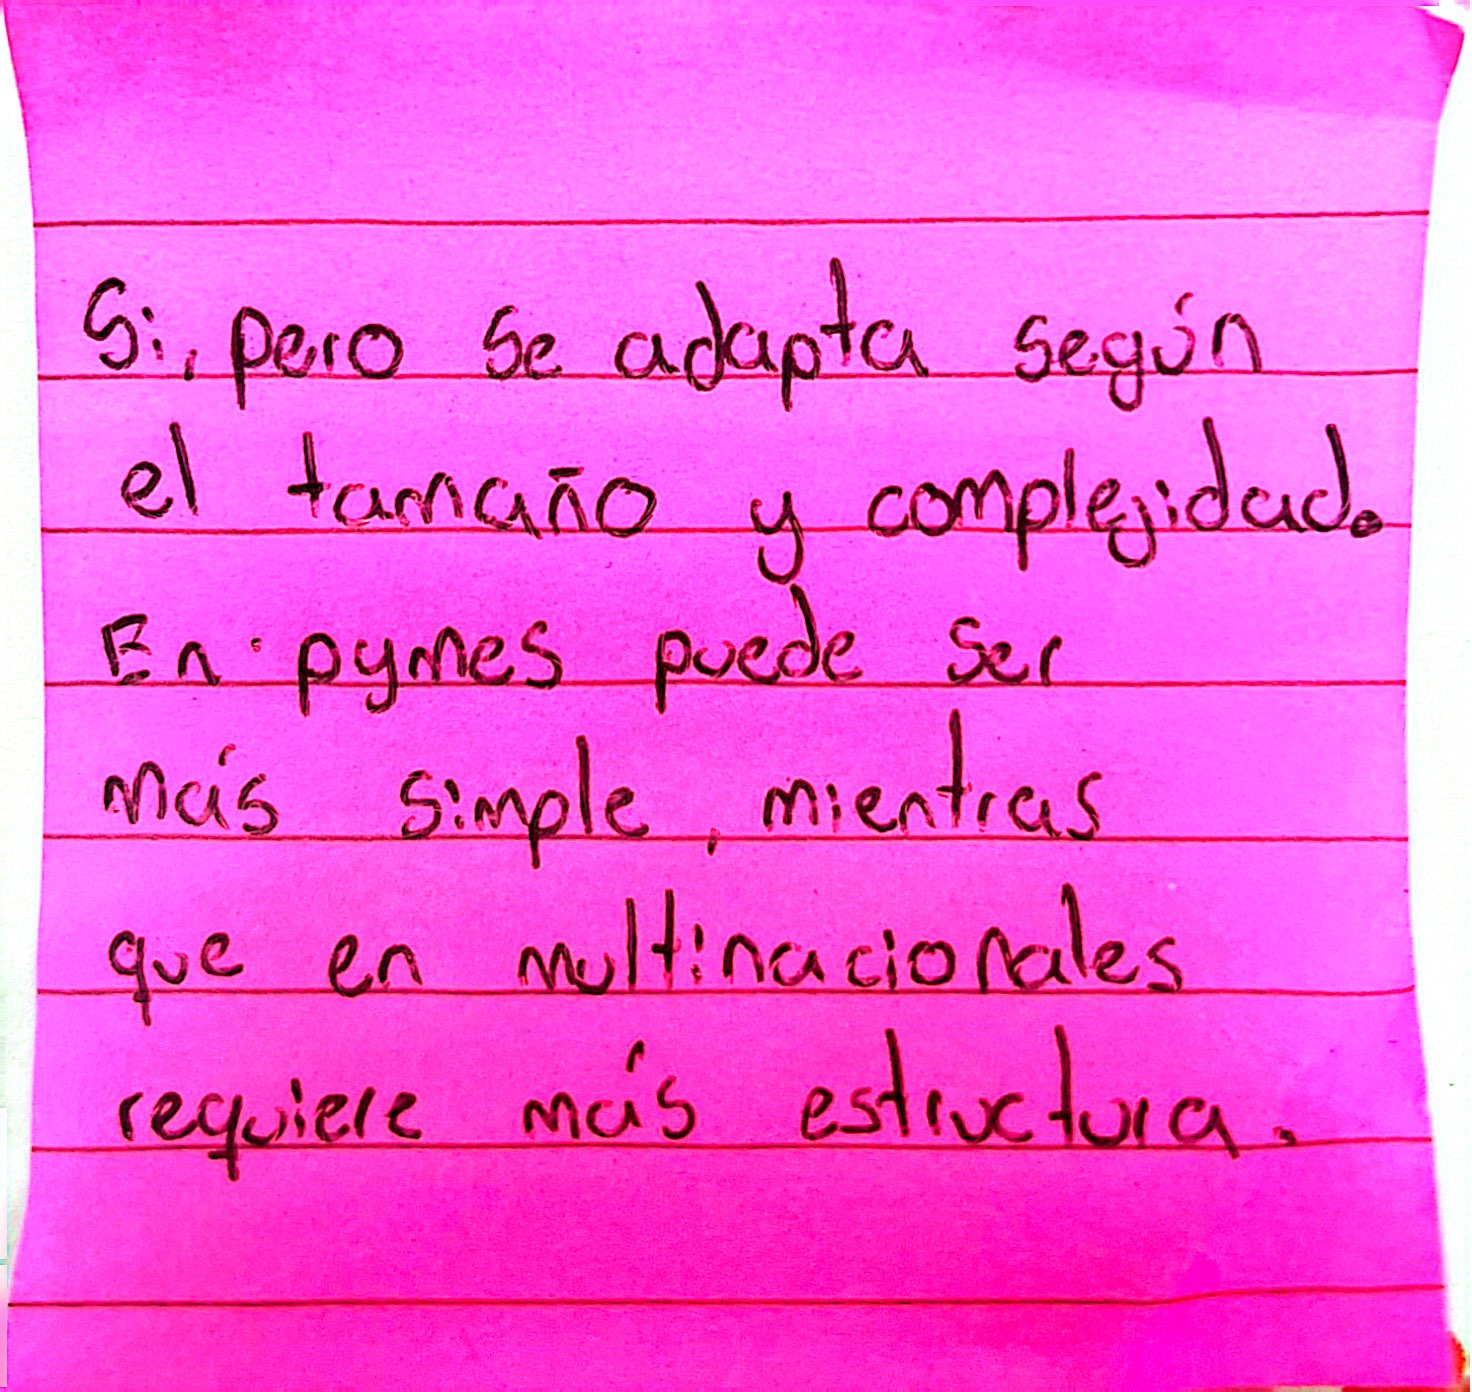 Si, pero se adapta según
el tamaño y complejidad.
En pymes puede ser
más simple, mientras
que en multinacionales
requiere más estructura.